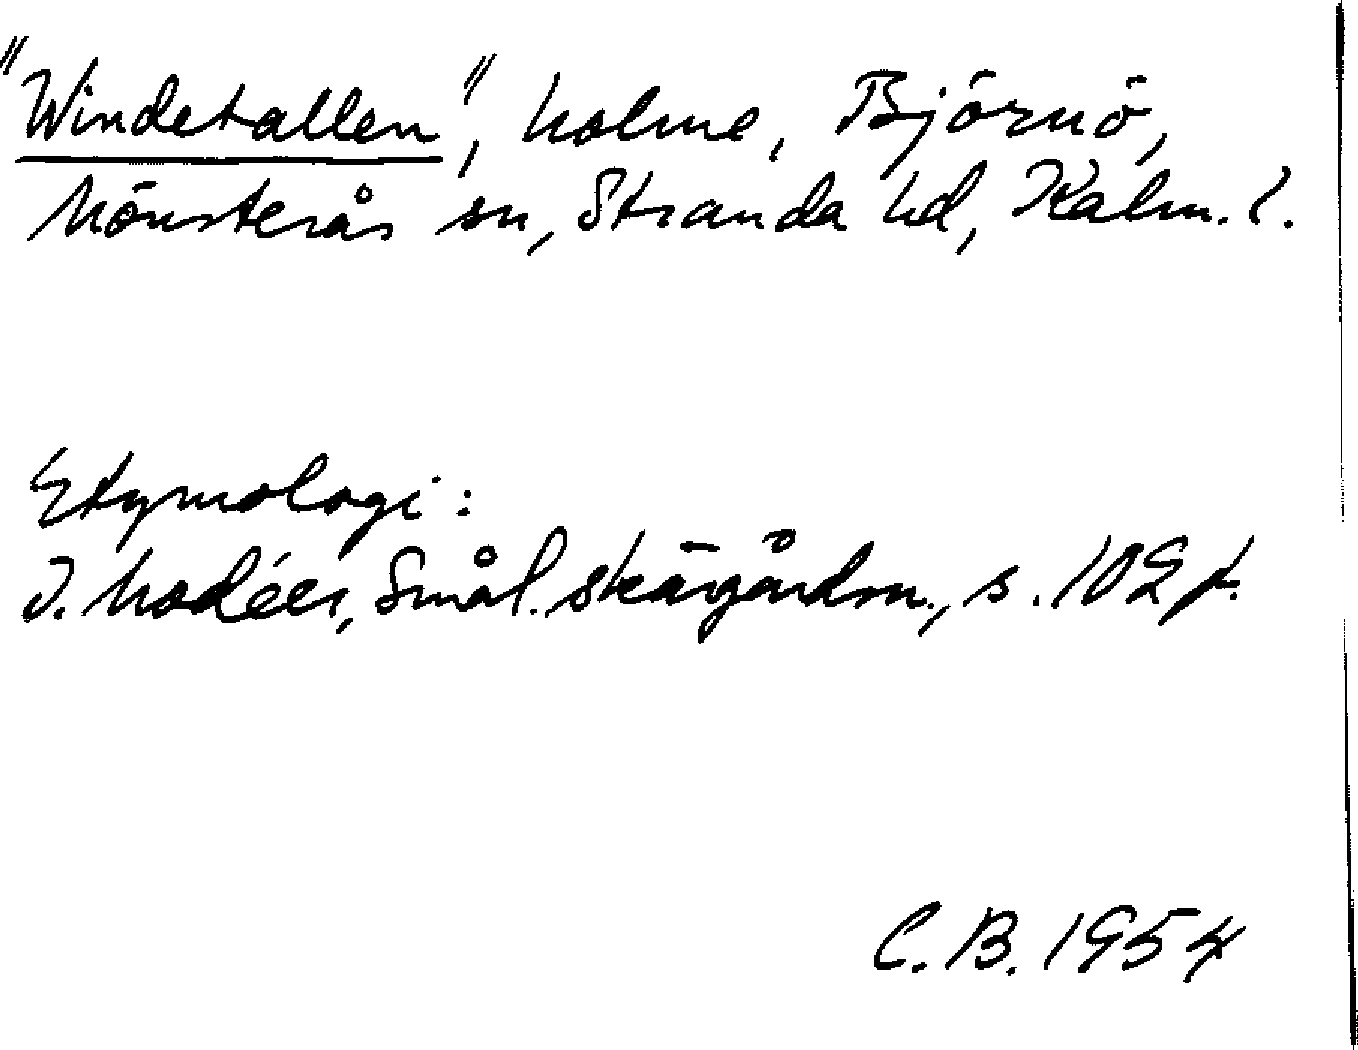 "Windetallen", holme, Björnö,
Mönsterås sn, Stranda hd, Kalm. l.
Etymologi:
I. Modéer, Smål. skärgårdsn., s. 102 f.
C.B. 1954